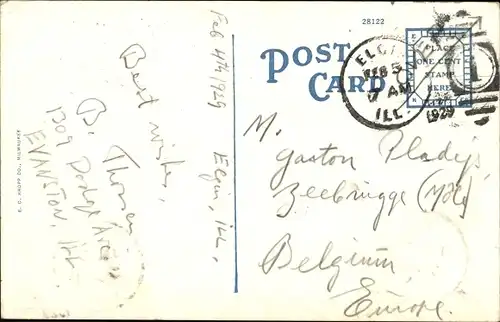 28122
POST CARD
PLACE
ONE CENT
STAMP
HERE
ELGIN
FEB 5
7 AM
ILL.
1929
1
Feb 4th 1929
Elgin, Ill.
Best wishes,
B. Thorsen
1309 Dodge Avenue
EVANSTON, Ill
E. C. KROPP CO., MILWAUKEE
M.
Gaston Pladys
Zeebrugge
Belgium
Europe.